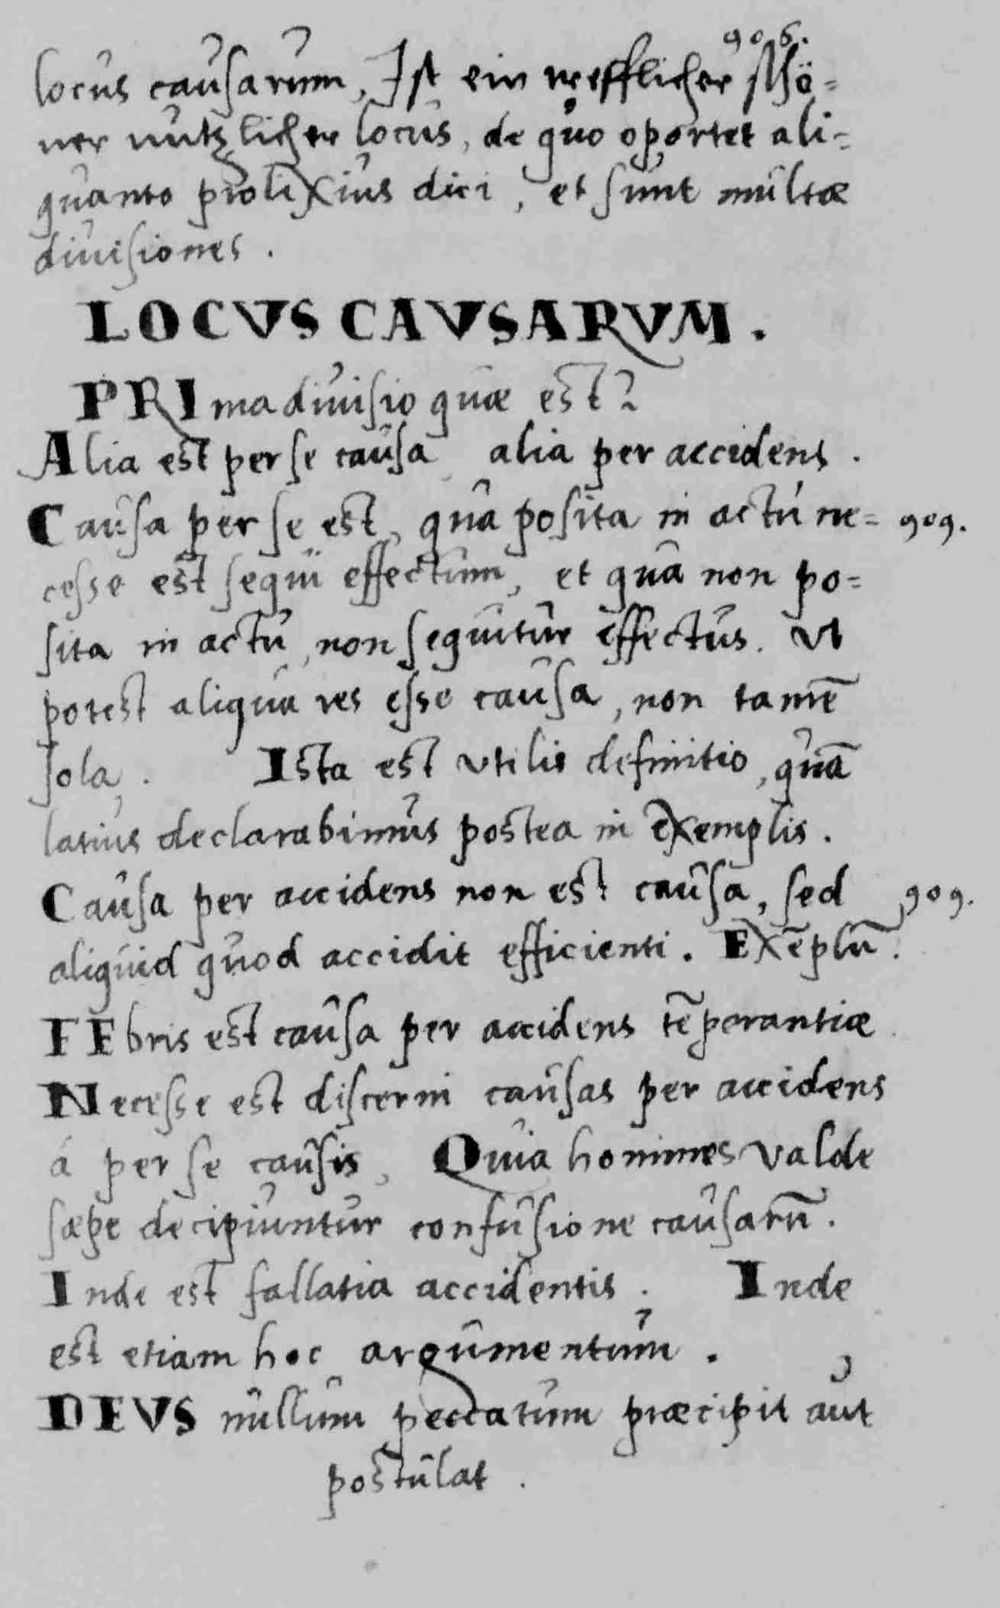 906.
locus causarum, Ist ein trefflicher schö=
ner nutzlicher locus, de quo oportet ali=
quanto prolixius dici, et sunt multæ
diuisiones.
LOCVS CAVSARVM.
PRIma diuisio quæ est?
Alia est per se causa alia per accidens.
Causa per se est, qua posita in actu ne= 909.
cesse est sequi effectum, et qua non po=
sita in actu, non sequitur effectus. Vt
potest aliqua res esse causa, non tamē
sola. Ista est vtilis definitio, quā
latius declarabimus postea in exemplis.
Causa per accidens non est causa, sed 909.
aliquid quod accidit efficienti. Exēplū.
FEbris est causa per accidens tēperantiæ
Necesse est discerni causas per accidens
á per se causis, Quia homines valde
sæpe decipiuntur confusione causarū.
Inde est fallatia accidentis. Inde
est etiam hoc argumentum.
DEVS nullum peccatum præcipit aut
postulat.